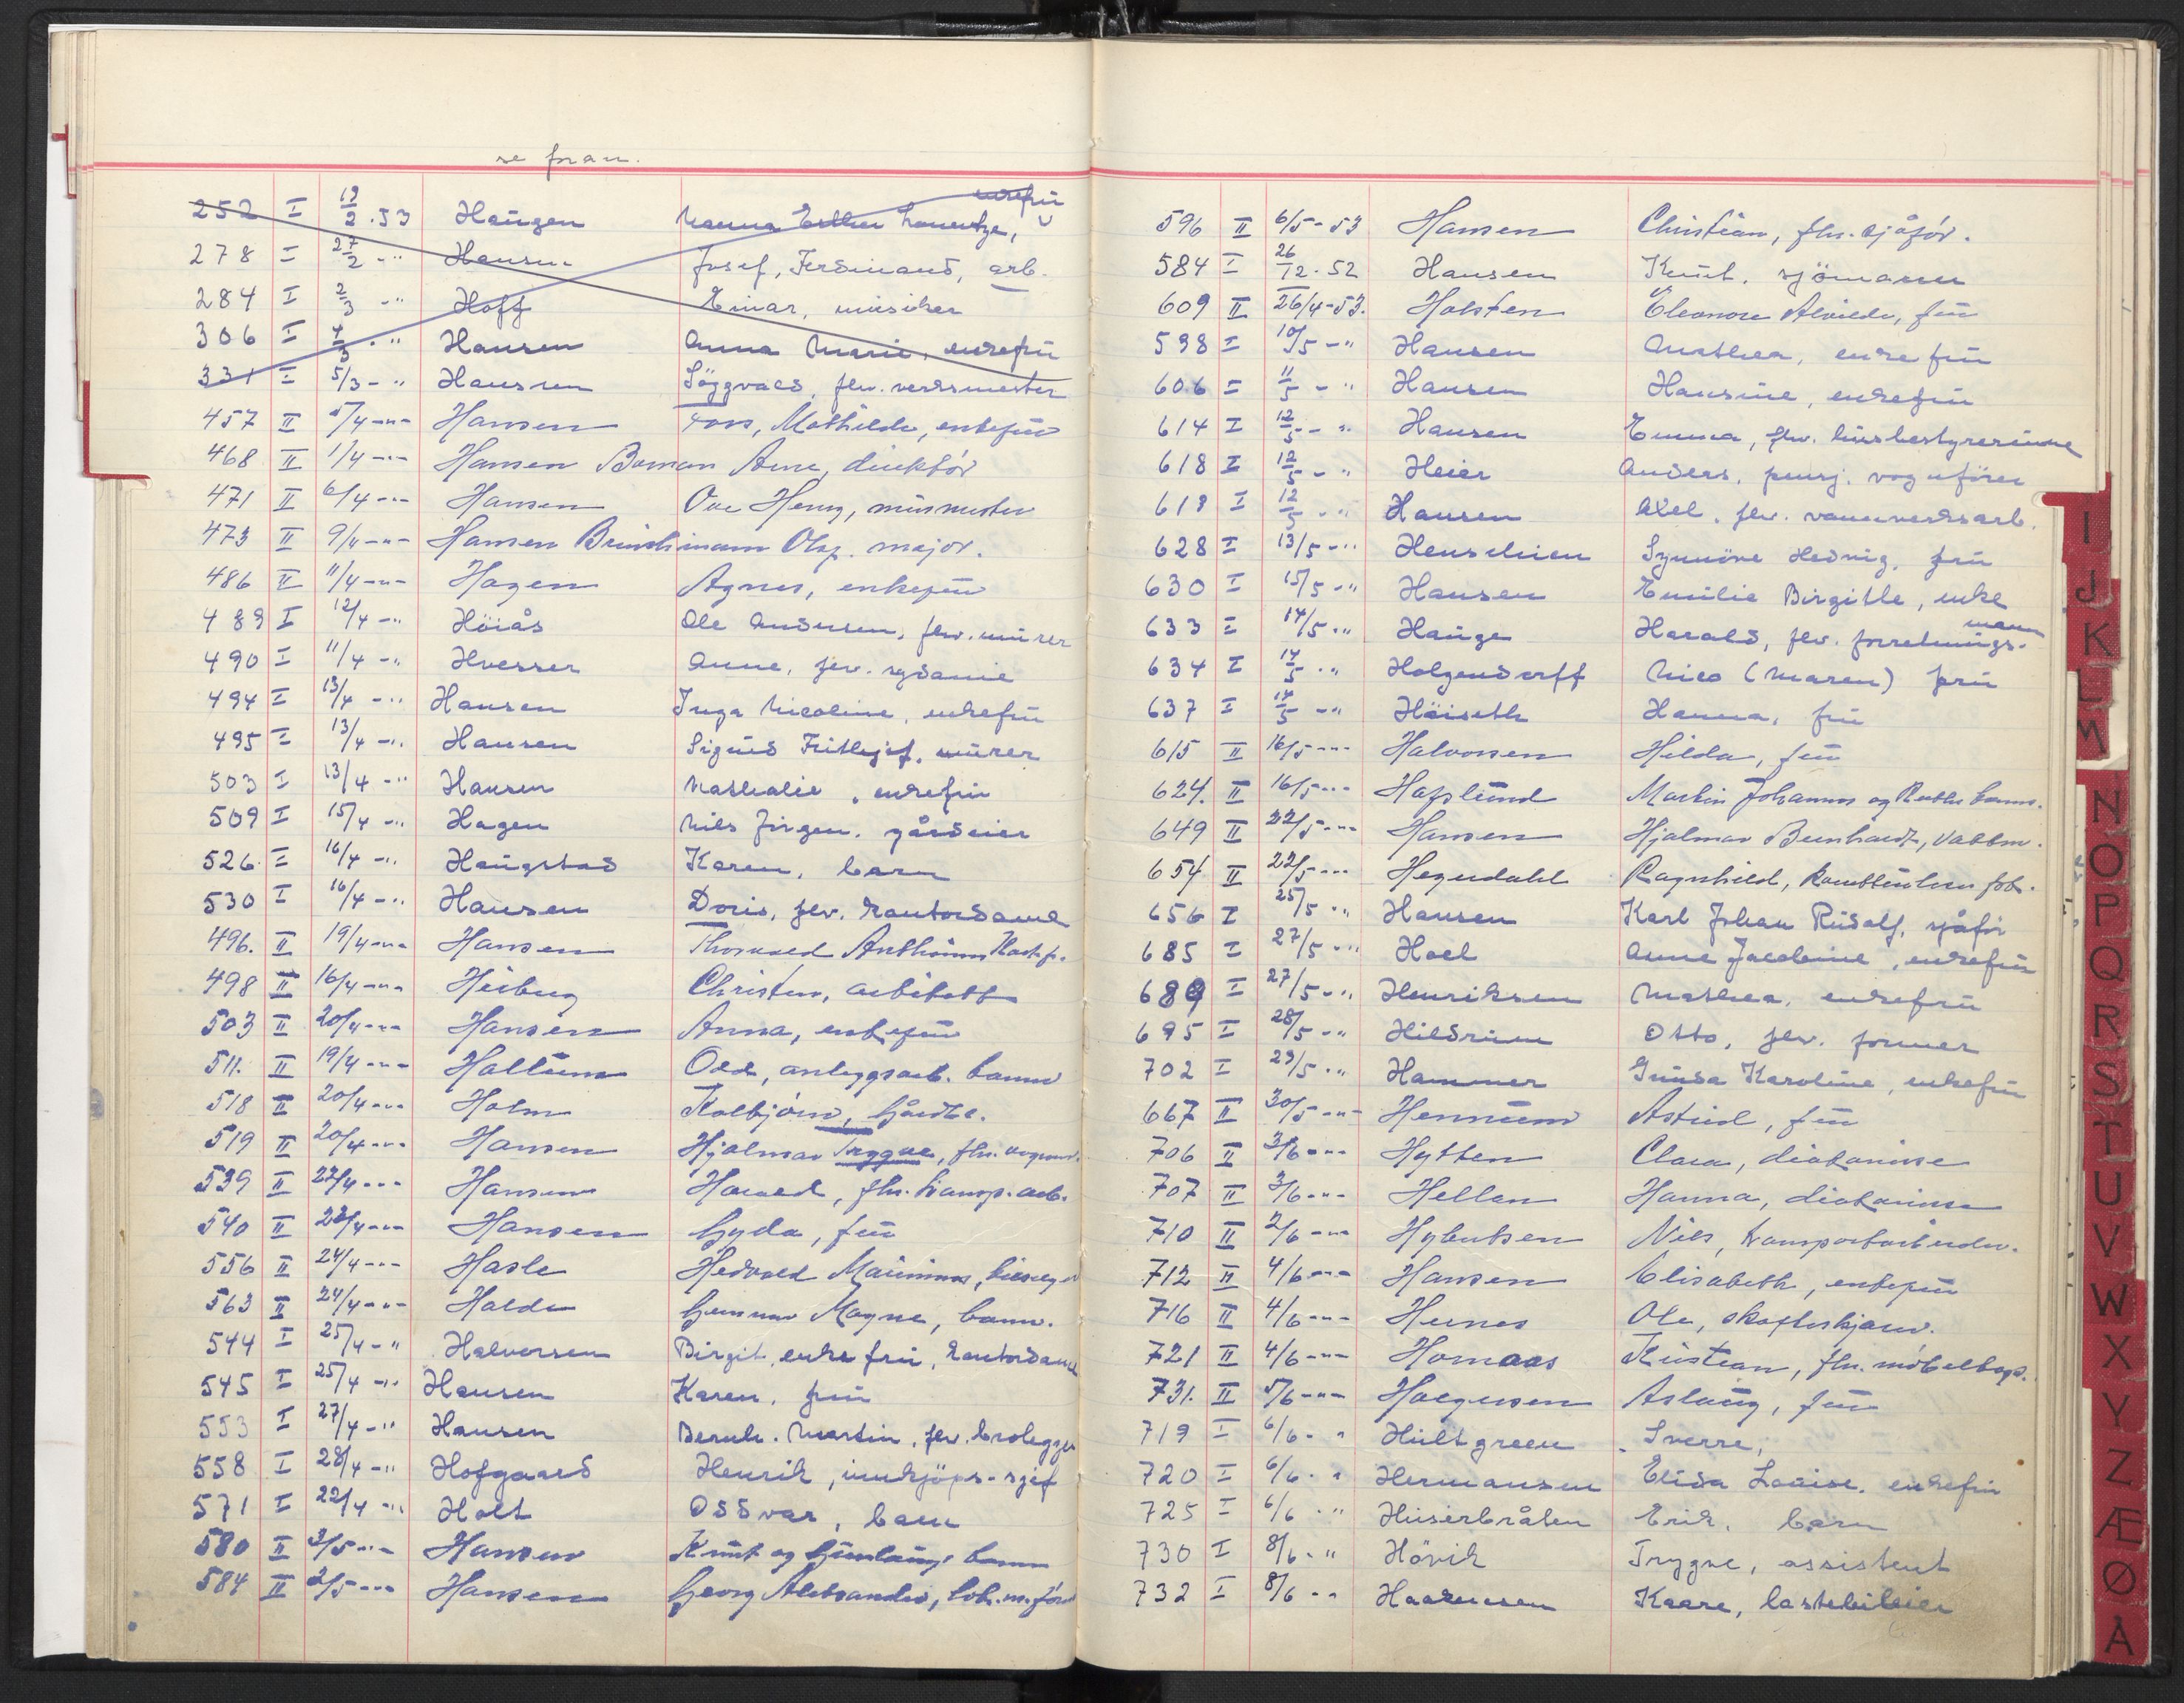 se foran.
252 I 19/2.53 Haugen Nanna Esther Laurentze, enkefru
278 I 27/2 -" Hansen Josef, Ferdinand, arb.
284 I 2/3 -" Hoff Einar, musiker
306 I 4/3 ." Hansen Anna Marie, enkefru
331 I 5/3 - " Hansen flv. verksmester
457 II 5/4 -"- Hansen Mathilde, enkefru
468 II 1/4 -"- Hansen Boman Arne, direktør
471 II 6/4 -"- Hansen Ove Henry, murmester
473 II 9/4 -"- Hansen Brinchmann Olaf. major.
486 II 11/4 -"- Hagen Agnes, enkefru
489 I 12/4 -" Höiås Ole Andersen, flv. murer
490 I 11/4 -" Hvesser Anne, flv. sydame
494 I 13/4 -" Hansen Inga Nicoline, enkefru
495 I 13/4 -". Hansen Sigurd Frithjof, murer
503 I 13/4 -" Hansen Nathalie, enkefru
509 I 15/4 -" Hagen Nils Jörgen, gårdeier
526 I 16/4 -". Haugstad Karen, barn
530 I 16/4 -". Hansen Doris, flv. kontordame
496. II 19/4 -"- Hansen Thorvald Anthonius
498 II 16/4 -"- Heiberg Christen, arkitekt
503 II 20/4 -"- Hansen Anna, enkefru
511. II 19/4 -"- Haltum Odd, anleggsarb. barn
518 II 20/4 -"- Holm Kolbjørn, gårdbr.
519 II 20/4 -"- Hansen Hjalmar Trygve, flv. vognm.
539 II 22/4 -"- Hansen Harald, flv. transp. arb.
540 II 23/4 -"- Hansen Gyda, fru
556 II 24/4 -"- Hasle Hedvald
563 II 24/4 -"- Halde Gunnar Magne, barn.
544 I 25/4 - " Halvorsen Birgit, enkefru, kontordame
545 I 25/4 -" Hansen Karen, fru
553 I 27/4 -" Hansen Bernh. Martin, flv. brolegger
558 I 28/4 -" Hofgaard Henrik, innkjöps-sjef
571 I 22/4 -" Holt Oddvar, barn
580 II 3/5 -"- Hansen Knut og Gunlaug, barn
584 II 2/5 -"- Hansen Georg Aleksander, lok.m.fører
596 II 6/5 - 53 Hansen Christian, flv. sjåför.
584 I 26/12. 52 Hansen Knut, sjömann
609 II 26/4-53. Holsten Eleonore Alvilde, fru
598 I 10/5 -" Hansen Mathea, enkefru
606 I 11/5 - " Hansen Hansine, enkefru
614 I 12/5 - " Hansen Emma, flv. husbestyrerinne
618 I 12/5 - " Heier Anders, pensj. vognfører
619 I 12/5 - " Hansen Axel, flv. vannverksarb.
628 I 13/5 -" Henschien Synnöve Hedvig, fru
630 I 15/5 -" Hansen Emilie Birgitte, enke
633 I 14/5 ." Hauge Harald, flv. forretningsmann
634 I 14/5 ." Holgendorff Nico (Maren) fru
637 I 14/5 -" Höiseth Hanna, fru
615 II 16/5 -"- Halvorsen Hilda, fru
624. II 16/5 -"- Hafslund Martin Johannes og Ruths barn.
649 II 22/5 -"- Hansen Hjalmar Bernhardt, vaktm.
654 II 22/5 -"- Hegerdahl Ragnhild,
656 I 25/5 ." Hansen Karl Johan Rudolf, sjåför
685 I 27/5 -" Hoel Anne Jacobine, enkefru
689 I 27/5 -". Henriksen Mathea, enkefru
695 I 28/5 -" Hildrum Otto, flv. former
702 I 29/5 ." Hammer Gunda Karoline, enkefru
667 II 30/5 -"- Hennum Astrid, fru
706 II 3/6 -"- Hytten Clara, diakonisse
707 II 3/6 -"- Hellan Hanna, diakonisse
710 II 2/6 -"- Hybertsen Nils, transportarbeider.
712 II 4/6 -"- Hansen Elisabeth, enkefru
716 II 4/6 -"- Hernes Ole,
721 II 4/6 -"- Homaas Kristian, flv.
731. II 5/6 -"- Halgersen Aslaug, fru
719 I 6/6 - " Hultgreen Sverre,
720 I 6/6 . " Hermansen Elida Louise, enkefru
725 I 6/6 ." Huserbråten Erik, barn
730 I 8/6 ." Hövik Trygve, assistent
732 I 8/6 -" Haakensen Kaare, lastebileier
I
J
K
L
M
N
O
P
Q
R
S
T
U
V
W
X
Y
Z
Æ
Ø
A